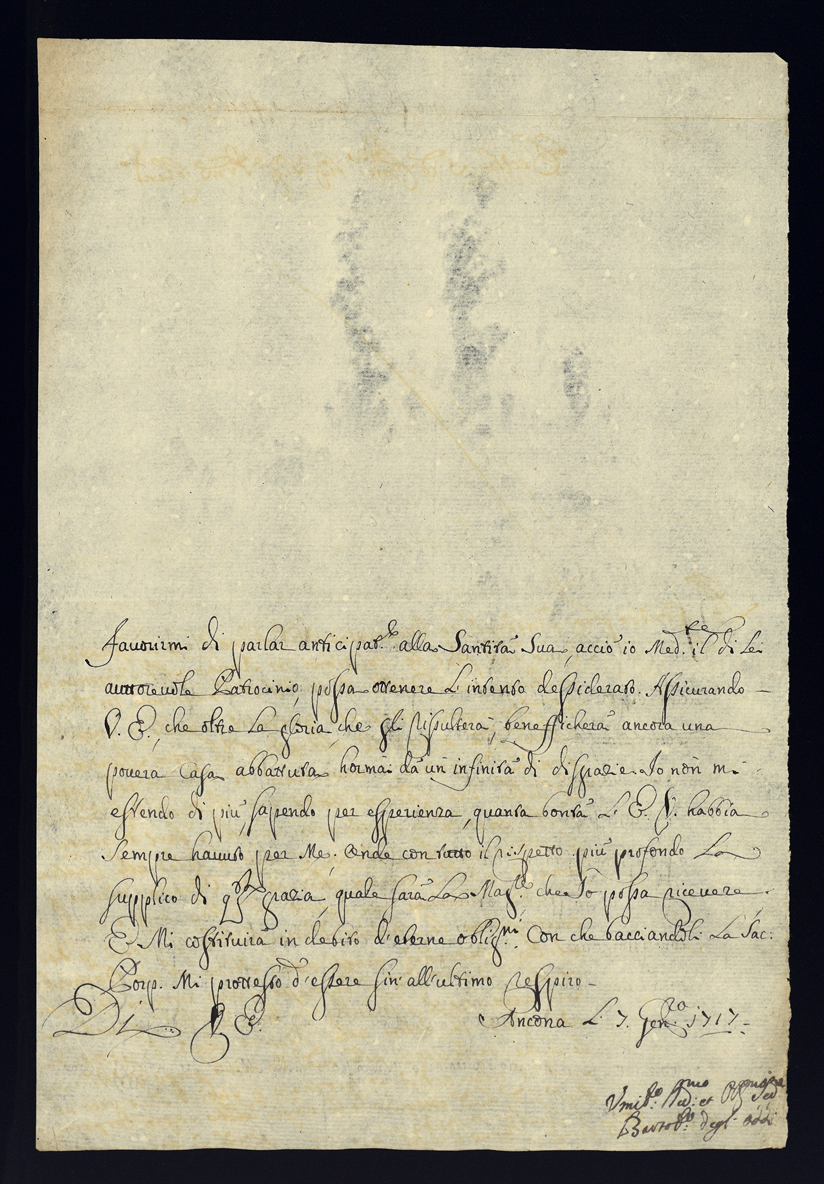 Favorirmi di parlar anticipat.te alla Santità Sua, acciò io Med.te il di Lei
auttorevole Patrocinio, possa ottenere L'intento dessiderato. Assicurando
V. E., che oltre La gloria, che gli rissulterà, benefficherà ancora una
povera Casa abbattuta hormai da un infinità di disgrazie. Io non mi
estendo di più sapendo per esperienza, quanta bontà L' E. V. habbia
sempre havuto per Me, Onde con tutto il rispetto più profondo La
supplico di q.sta grazia, quale sarà La Mag.re che Io possa ricevere,
E Mi costituirà in debito d'eterne oblig.ni. Con che bacciandoli La Sac:
Porp. Mi protesto d'essere sin' all'ultimo respiro
Di V. E.
Ancona Li 7. Gen.ro 1717.
Vmil.o
Bartol.o degl' Oddi